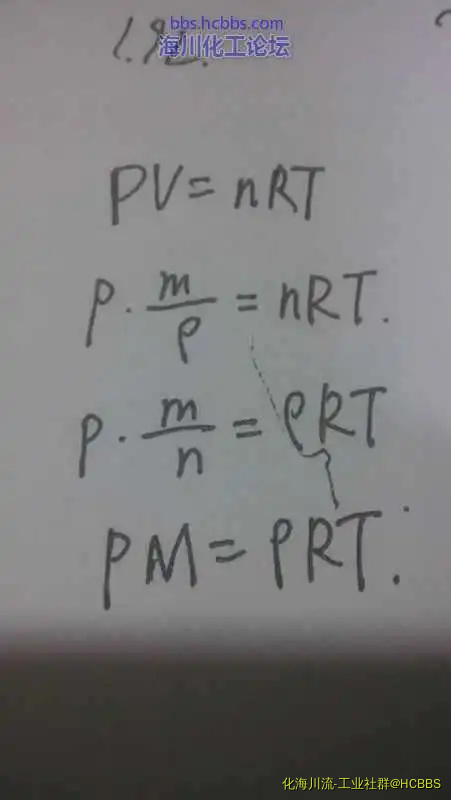 bbs.hcbbs.com
海川化工论坛
PV = nRT
P · m/ρ = nRT.
P · m/n = ρRT
PM = ρRT.
化海川流-工业社群@HCBBS